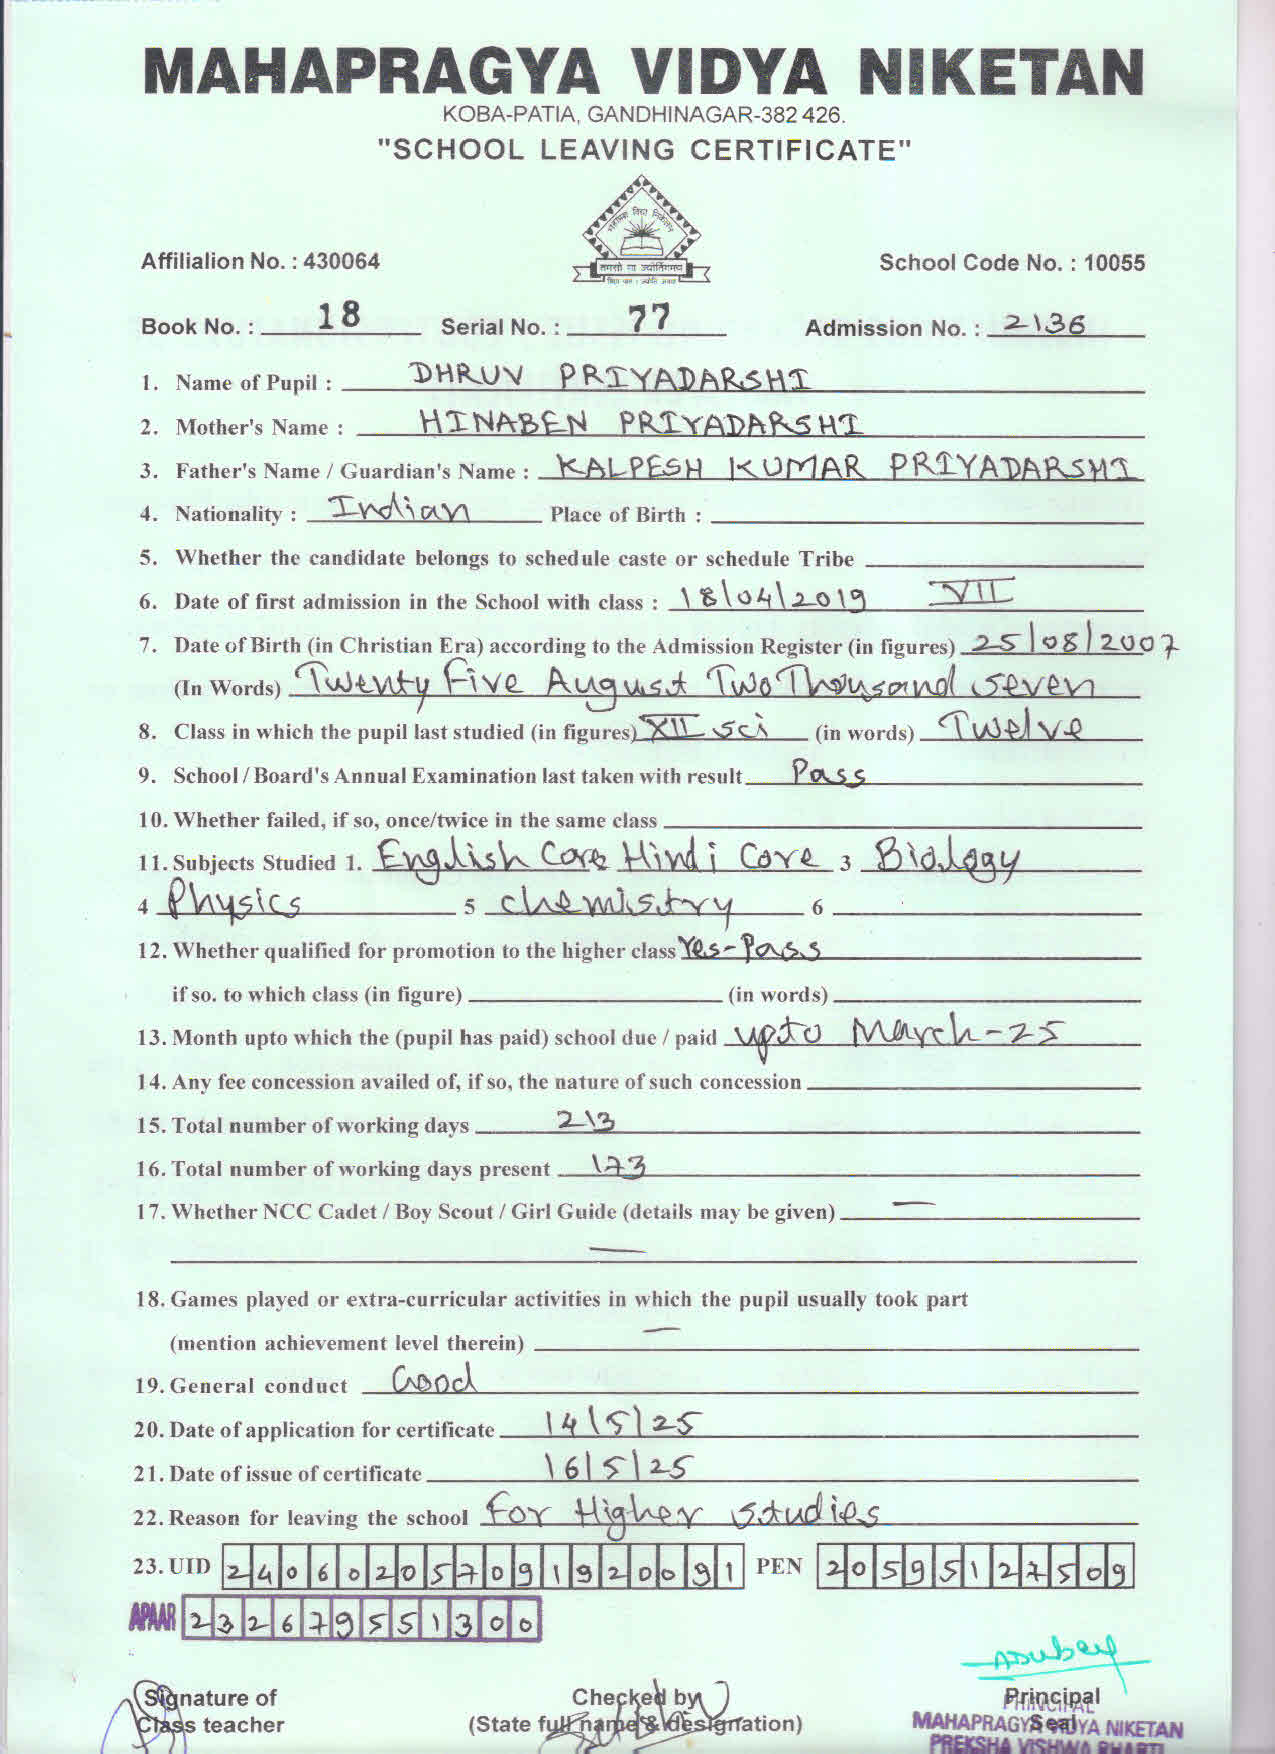 MAHAPRAGYA VIDYA NIKETAN
KOBA-PATIA, GANDHINAGAR-382 426.
"SCHOOL LEAVING CERTIFICATE"
महाप्रज्ञ विद्या निकेतन
तमसो मा ज्योतिर्गमय
Affilialion No. : 430064 School Code No. : 10055
Book No. : 18 Serial No. : 77 Admission No. : 2136
1. Name of Pupil : DHRUV PRIYADARSHI
2. Mother's Name : HINABEN PRIYADARSHI
3. Father's Name / Guardian's Name : KALPESH KUMAR PRIYADARSHI
4. Nationality : Indian Place of Birth :
5. Whether the candidate belongs to schedule caste or schedule Tribe
6. Date of first admission in the School with class : 18/04/2019 VII
7. Date of Birth (in Christian Era) according to the Admission Register (in figures) 25/08/2007
(In Words) Twenty Five August Two Thousand seven
8. Class in which the pupil last studied (in figures) XII sci (in words) Twelve
9. School / Board's Annual Examination last taken with result Pass
10. Whether failed, if so, once/twice in the same class
11. Subjects Studied 1. English Core 2 Hindi Core 3 Biology
4 Physics 5 chemistry 6
12. Whether qualified for promotion to the higher class Yes-Pass
if so. to which class (in figure) (in words)
13. Month upto which the (pupil has paid) school due / paid upto March-25
14. Any fee concession availed of, if so, the nature of such concession
15. Total number of working days 213
16. Total number of working days present 173
17. Whether NCC Cadet / Boy Scout / Girl Guide (details may be given) —
—
18. Games played or extra-curricular activities in which the pupil usually took part
(mention achievement level therein) —
19. General conduct Good
20. Date of application for certificate 14/5/25
21. Date of issue of certificate 16/5/25
22. Reason for leaving the school For Higher studies
23. UID 240602057091920091 PEN 20595127509
APAAR 232679551300
Signature of Checked by Principal
Class teacher (State full name & designation) Seal
PRINCIPAL
MAHAPRAGYA VIDYA NIKETAN
PREKSHA VISHWA BHARTI